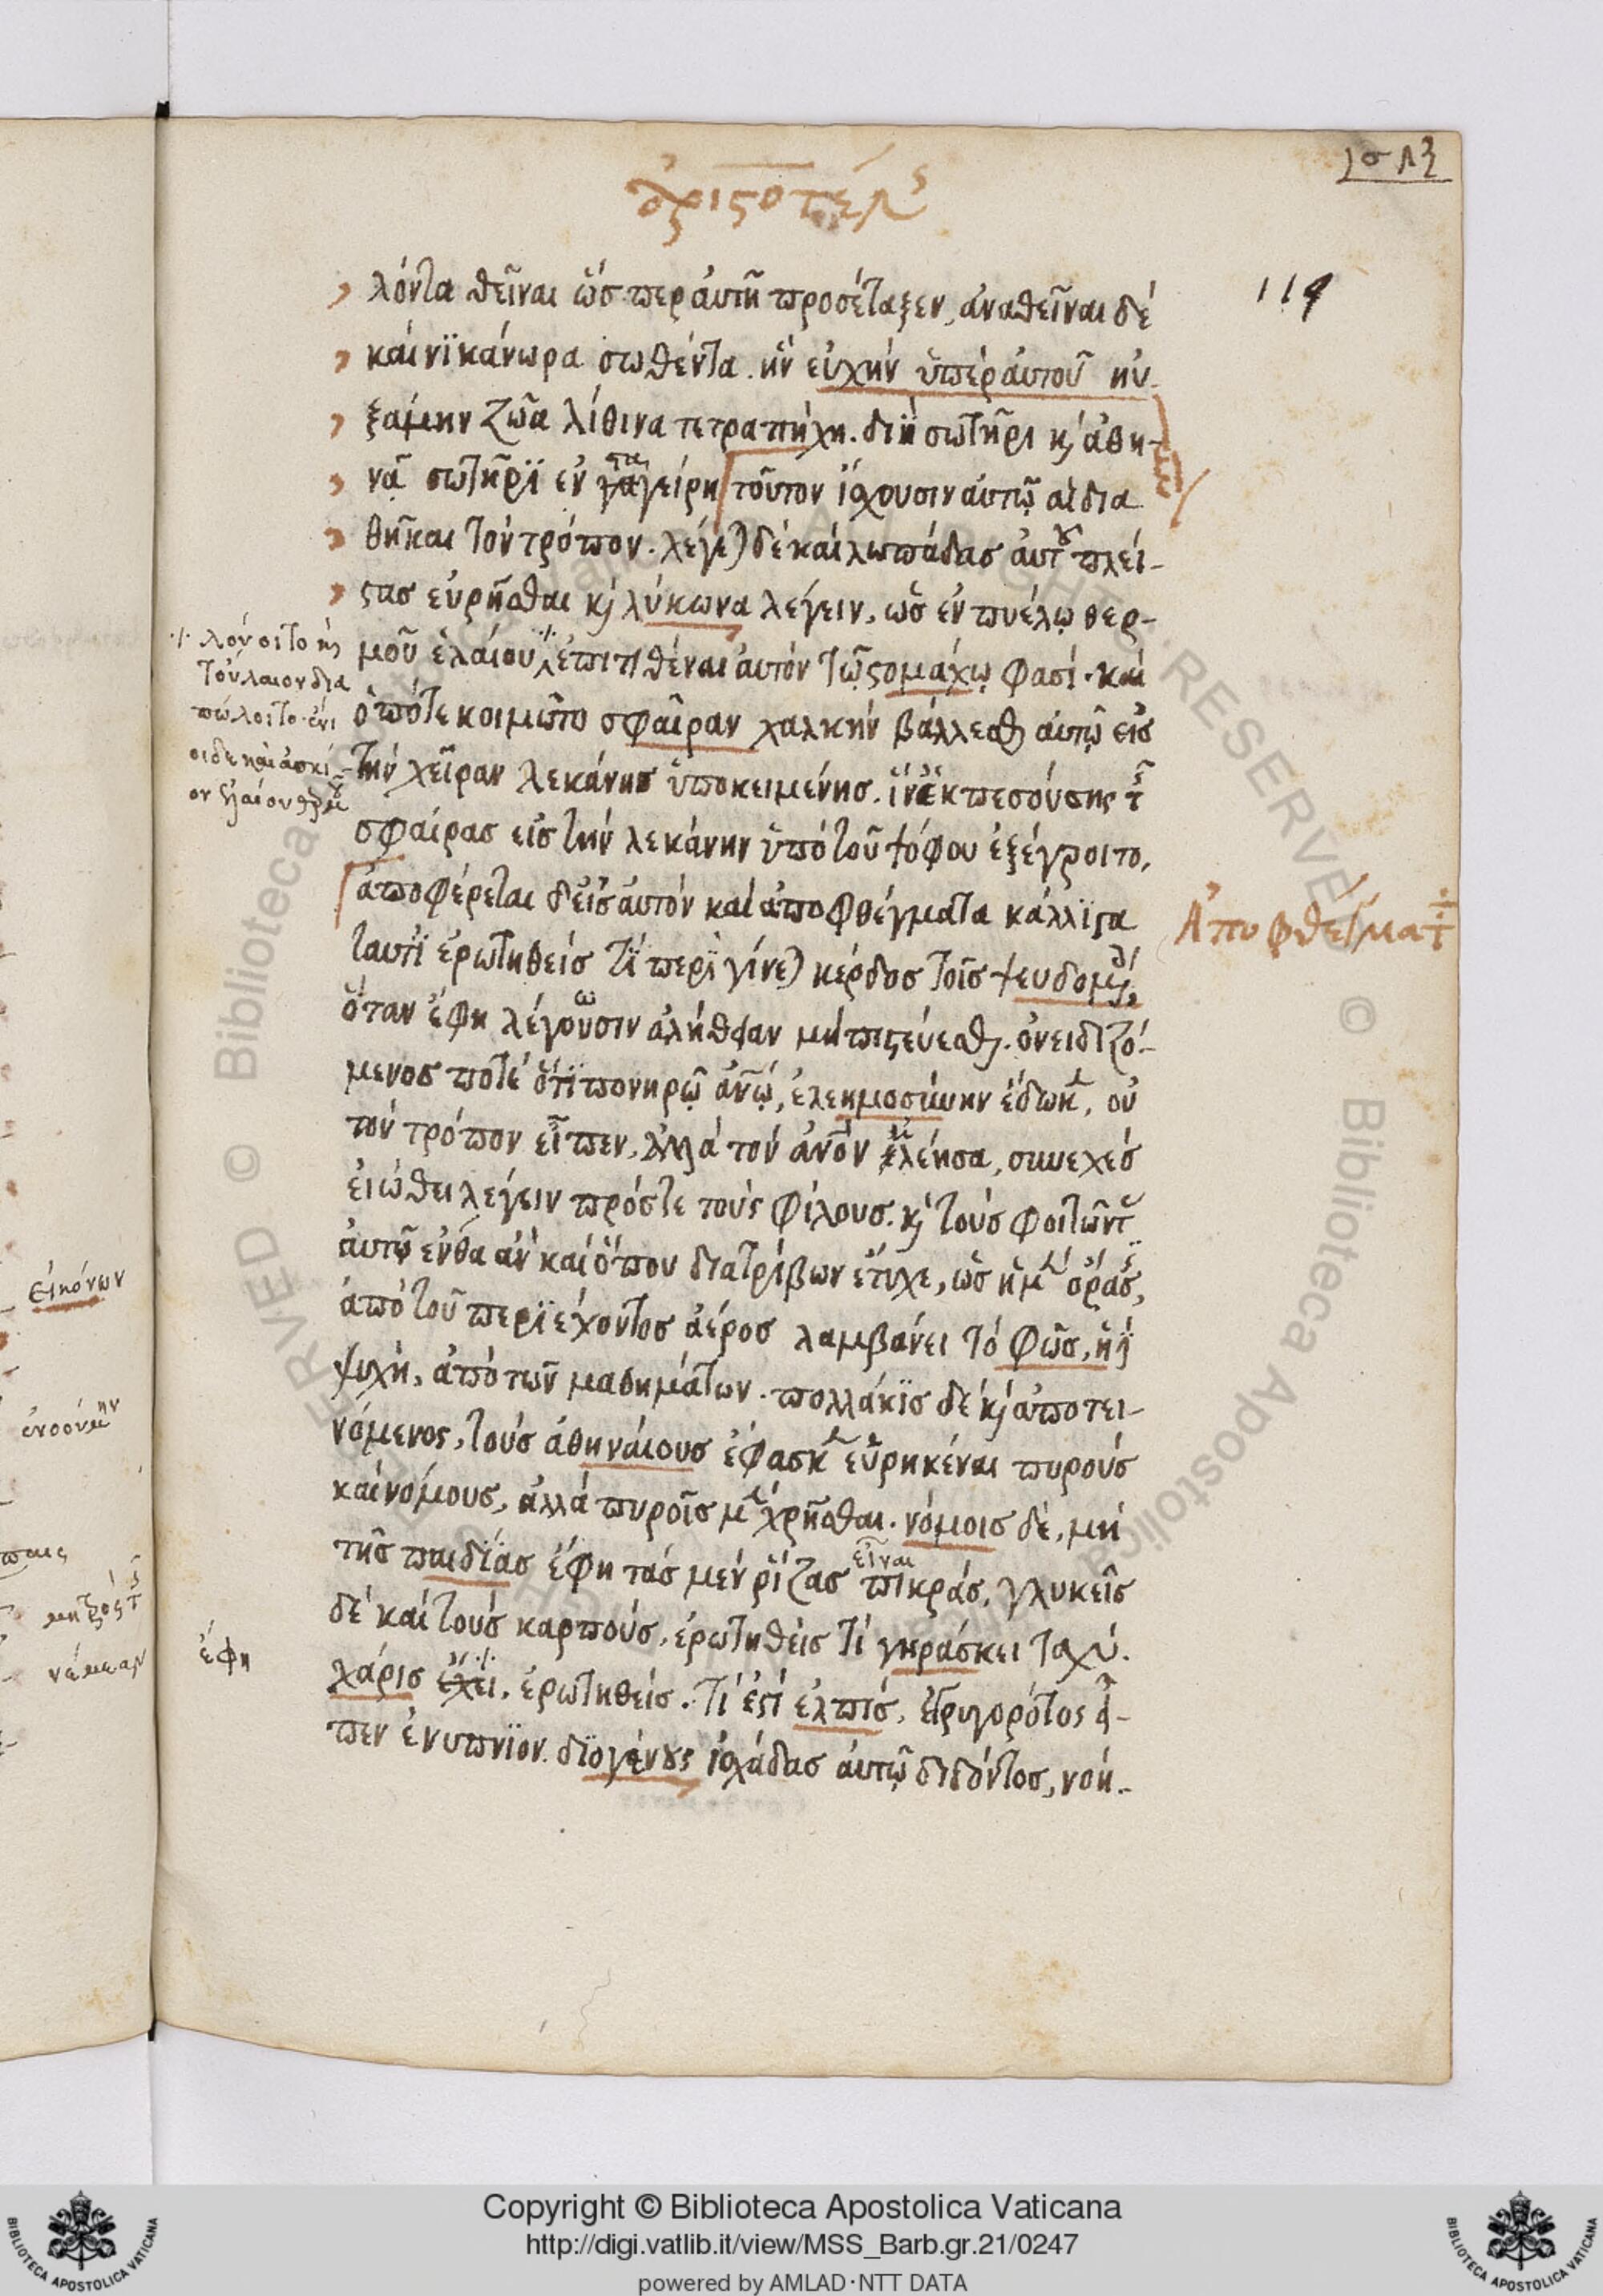 ἀριστοτέλης
119
λόντα θεῖναι ὥσπερ αὐτῆ προσέταξεν, ἀναθεῖναι δὲ
καὶ νϊκάνωρα σωθέντα. ἣν εὐχὴν ὑπὲρ αὐτοῦ ηὐ-
ξάμην ζῶα λίθινα τετραπήχη. διῒ σωτῆρι κ̀ ἀθη-
νᾷ σωτῆρϊ ἐν γαγείρη τοῦτον ἴσχουσιν αὐτῷ αἱ δια
στα
θῆκαι τὸν τρόπον. λέγε) δὲ καὶ λωπάδας αὐτοῦ πλεί-
στας εὑρῆσθαι κ̀ λύκωνα λέγειν, ὡς ἐν πυέλῳ θερ-
μοῦ ἐλαίου ἐπιτιθέναι αὐτὸν τῷ στομάχῳ φασί. καὶ
ὁπότε κοιμῷτο σφαῖραν χαλκὴν βάλλεσθαι αὐτῷ εἰς
τὴν χεῖραν λεκάνης ὑποκειμένης. ἵν' ἐκπεσούσης τῆς
σφαίρας εἰς τὴν λεκάνην ὑπὸ τοῦ ψόφου ἐξέγροιτο,
ἀποφέρεται δ' εἰς αὐτὸν καὶ ἀποφθέγματα κάλλϊστα
ταυτὶ ἐρωτηθεὶς τί περϊγίνε) κέρδος τοῖς ψευδομένοις,
ὅταν ἔφη λέγουσιν ἀλήθειαν μὴ πιστεύεσθαι. ὀνειδιζό-
ω
μενος ποτὲ ὅτϊ πονηρῷ ἀνῷ, ἐλεημοσύνην ἔδωκεν, οὐ
τὸν τρόπον εἶπεν, ἀλλὰ τὸν ἀνον ἐλέησα, συνεχὲς
εἰώθει λέγειν πρός τε τοὺς φίλους. κ̀ τοὺς φοιτῶντας
αὐτῷ ἔνθα ἂν καὶ ὅπου διατρίβων ἔτυχε, ὡς ἡ μὲν ὅρασις,
ἀπὸ τοῦ περϊέχοντος ἀέρος λαμβάνει τὸ φῶς, ἡ δὲ
ψυχὴ, ἀπὸ τῶν μαθημάτων. πολλάκϊς δὲ κ̀ ἀποτει-
νόμενος, τοὺς ἀθηναίους ἔφασκεν εὑρηκέναι πυροὺς
καὶ νόμους, ἀλλὰ πυροῖς μὲν χρῆσθαι. νόμοις δὲ, μὴ
τῆς παιδϊας ἔφη τὰς μὲν ῥίζας πικράς, γλυκεῖς
εἶναι
δὲ καὶ τοὺς καρποὺς, ἐρωτηθεὶς τί γηράσκει ταχύ.
χάρις ἔχει, ἐρωτηθείς. τί ἐστὶ ἐλπίς, ἐγρηγορότος εἶ-
πεν ἐνυπνϊον. δϊογένους ἰσχάδας αὐτῷ διδόντος, νοή-
λούοιτο κ̀
τοὔλαιον δια
πώλοιτο· ἔνι
οι δὲ καὶ ἀσκί
ον ἐλαίου θερμοῦ
Ἀποφθέγματα
ἔφη
εἰκόνων
νέμεαν
Copyright © Biblioteca Apostolica Vaticana
http://digi.vatlib.it/view/MSS_Barb.gr.21/0247
powered by AMLAD·NTT DATA
BIBLIOTECA APOSTOLICA VATICANA
BIBLIOTECA APOSTOLICA VATICANA